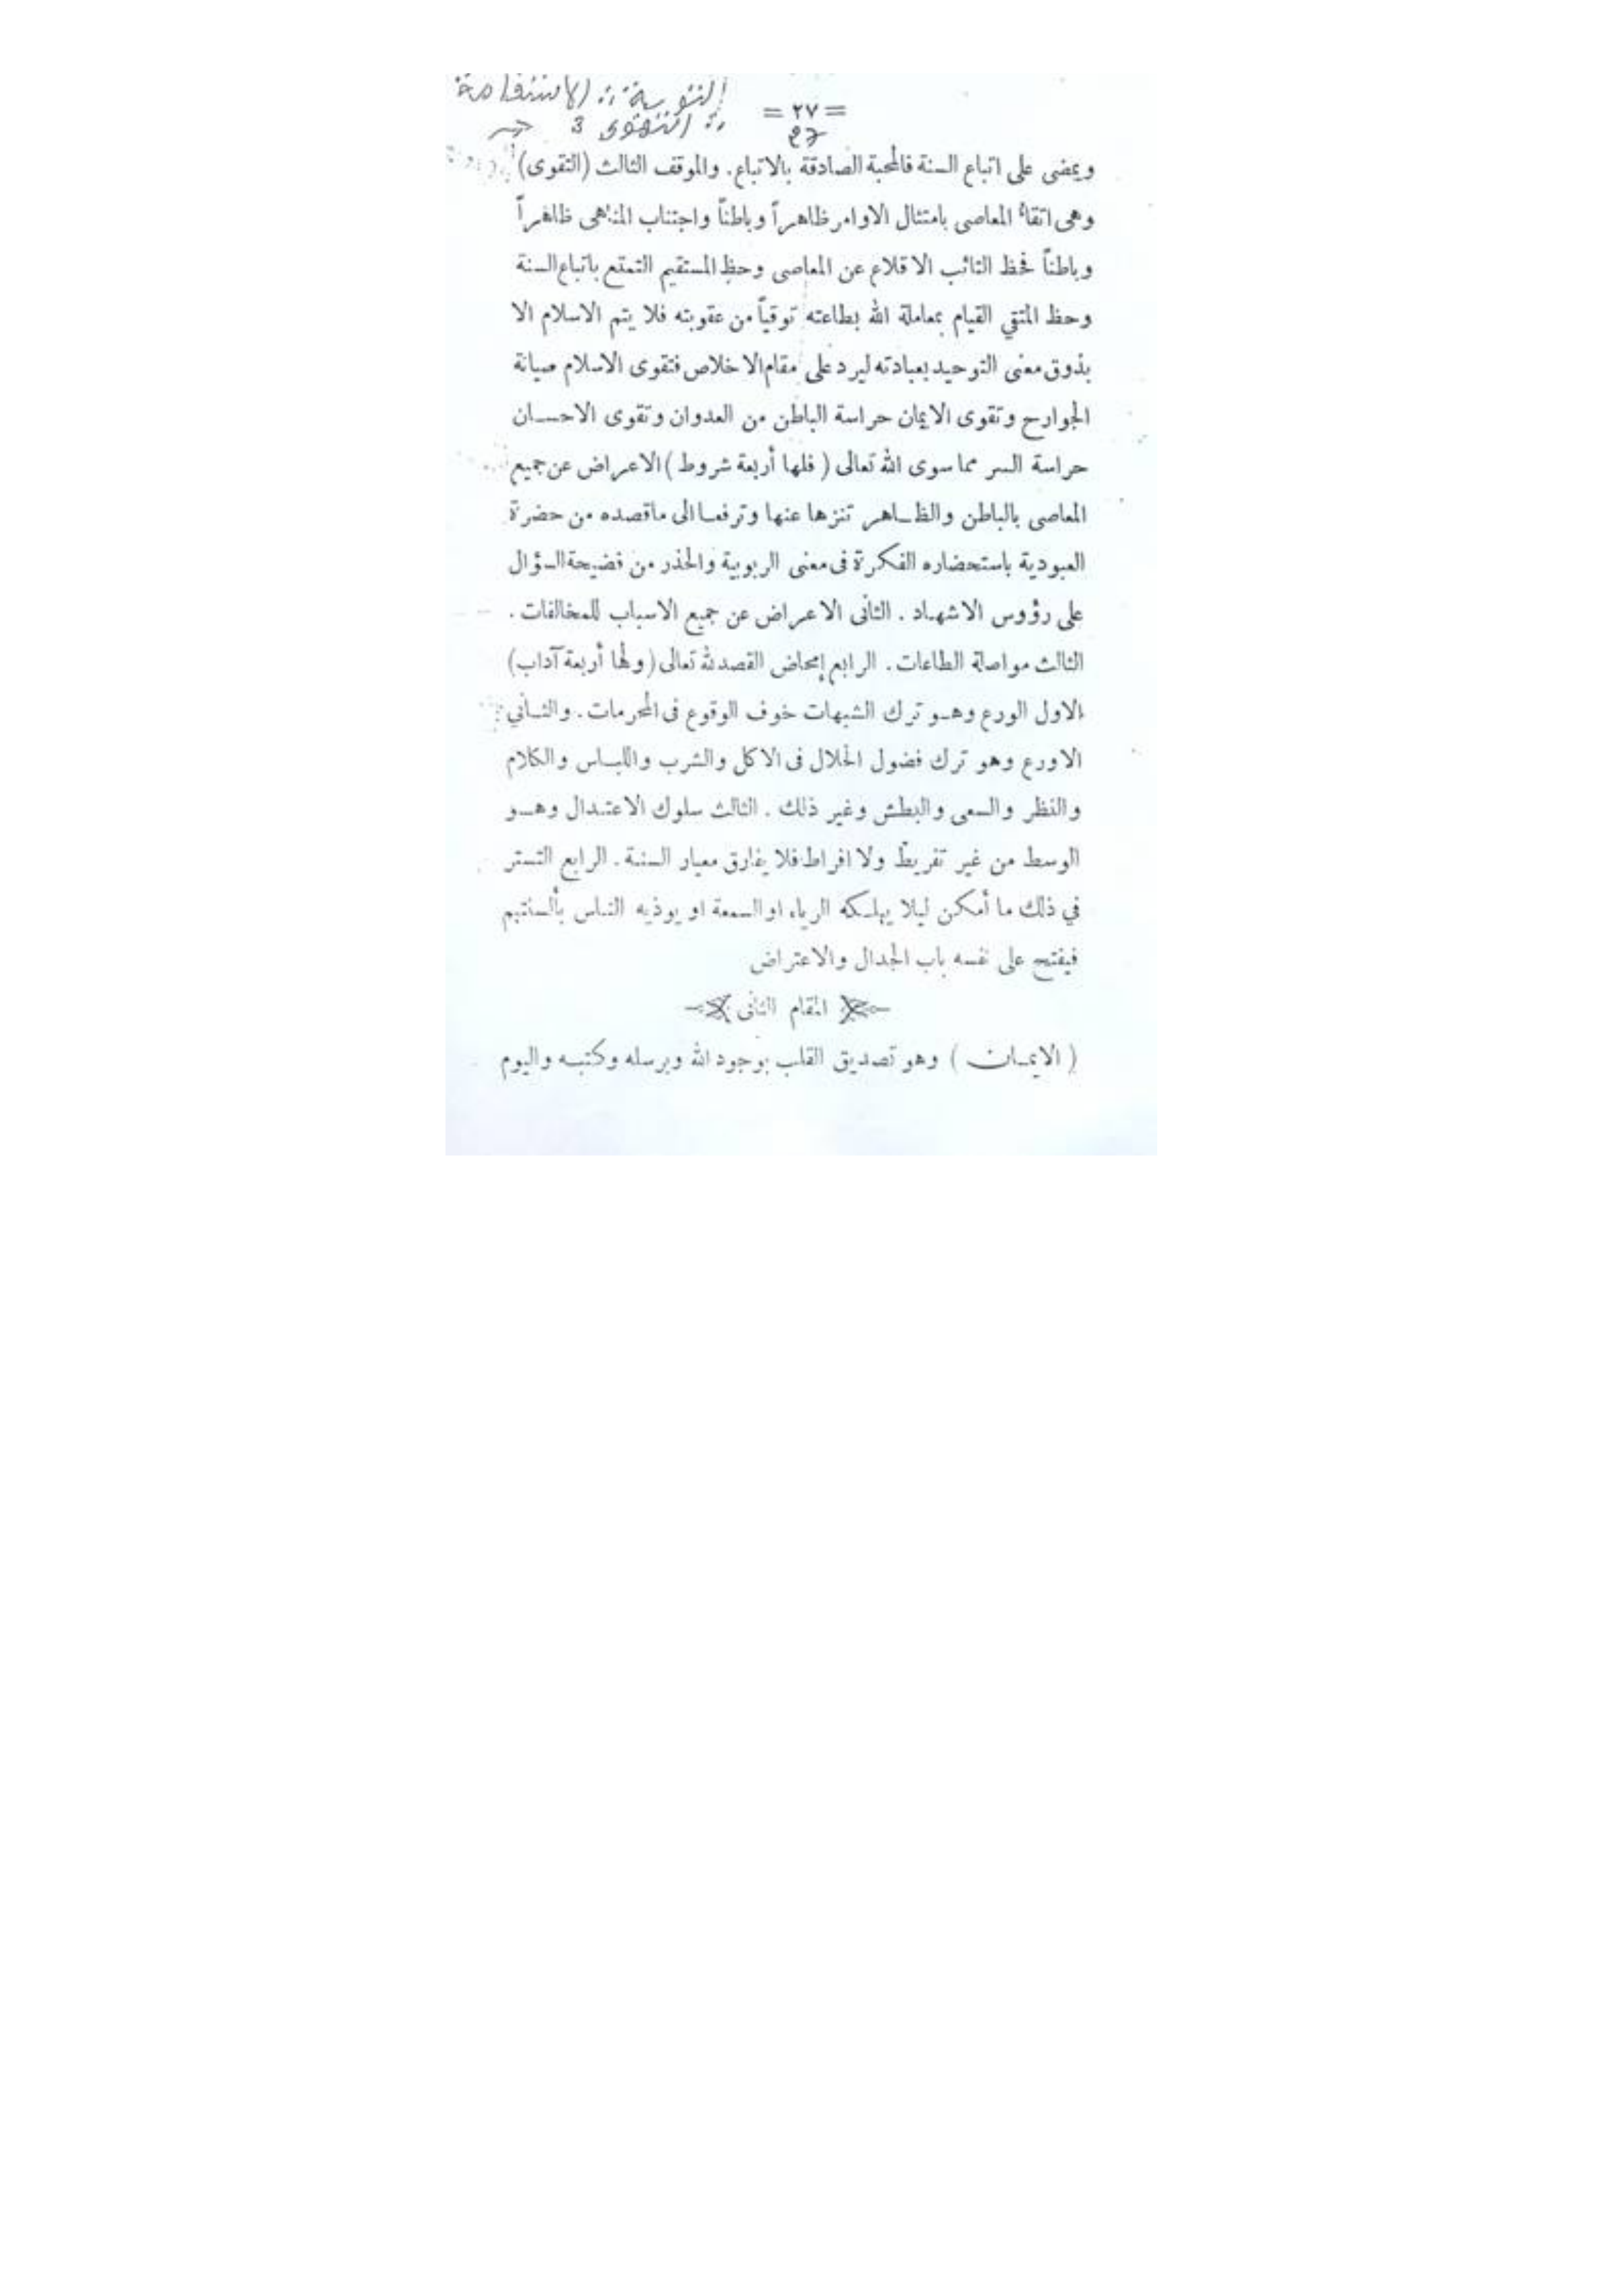 التوبة :: الاستقامة
:: التقوى 3
= ٢٧ =
27
ويمضى على اتباع السنة فالمحبة الصادقة بالاتباع. والموقف الثالث (التقوى)
وهى اتقاء المعاصى بامتثال الاوامر ظاهراً وباطناً واجتناب المناهى ظاهراً
وباطناً فحظ التائب الاقلاع عن المعاصى وحظ المستقيم التمتع باتباع السنة
وحظ المتقي القيام بمعاملة الله بطاعته توقياً من عقوبته فلا يتم الاسلام الا
بذوق معنى التوحيد بعبادته ليرد على مقام الاخلاص فتقوى الاسلام صيانة
الجوارح وتقوى الايمان حراسة الباطن من العدوان وتقوى الاحسان
حراسة السر مما سوى الله تعالى ( فلها أربعة شروط ) الاعراض عن جميع
المعاصى بالباطن والظاهر تنزها عنها وترفعا الى ماقصده من حضرة
العبودية باستحضاره الفكرة فى معنى الربوبية والحذر من فضيحة السؤال
على رؤوس الاشهاد . الثانى الاعراض عن جميع الاسباب للمخالفات .
الثالث مواصلة الطاعات . الرابع إمحاض القصد لله تعالى (ولها أربعة آداب)
الاول الورع وهو ترك الشبهات خوف الوقوع فى المحرمات . والثاني
الاورع وهو ترك فضول الحلال فى الاكل والشرب واللباس والكلام
والنظر والسعى والبطش وغير ذلك . الثالث سلوك الاعتدال وهو
الوسط من غير تفريط ولا افراط فلا يفارق معيار السنة . الرابع التستر
في ذلك ما أمكن ليلا يهلكه الرياء او السمعة او يوذيه الناس بألسنتهم
فيفتح على نفسه باب الجدال والاعتراض
المقام الثانى
( الايمان ) وهو تصديق القلب بوجود الله وبرسله وكتبه واليوم